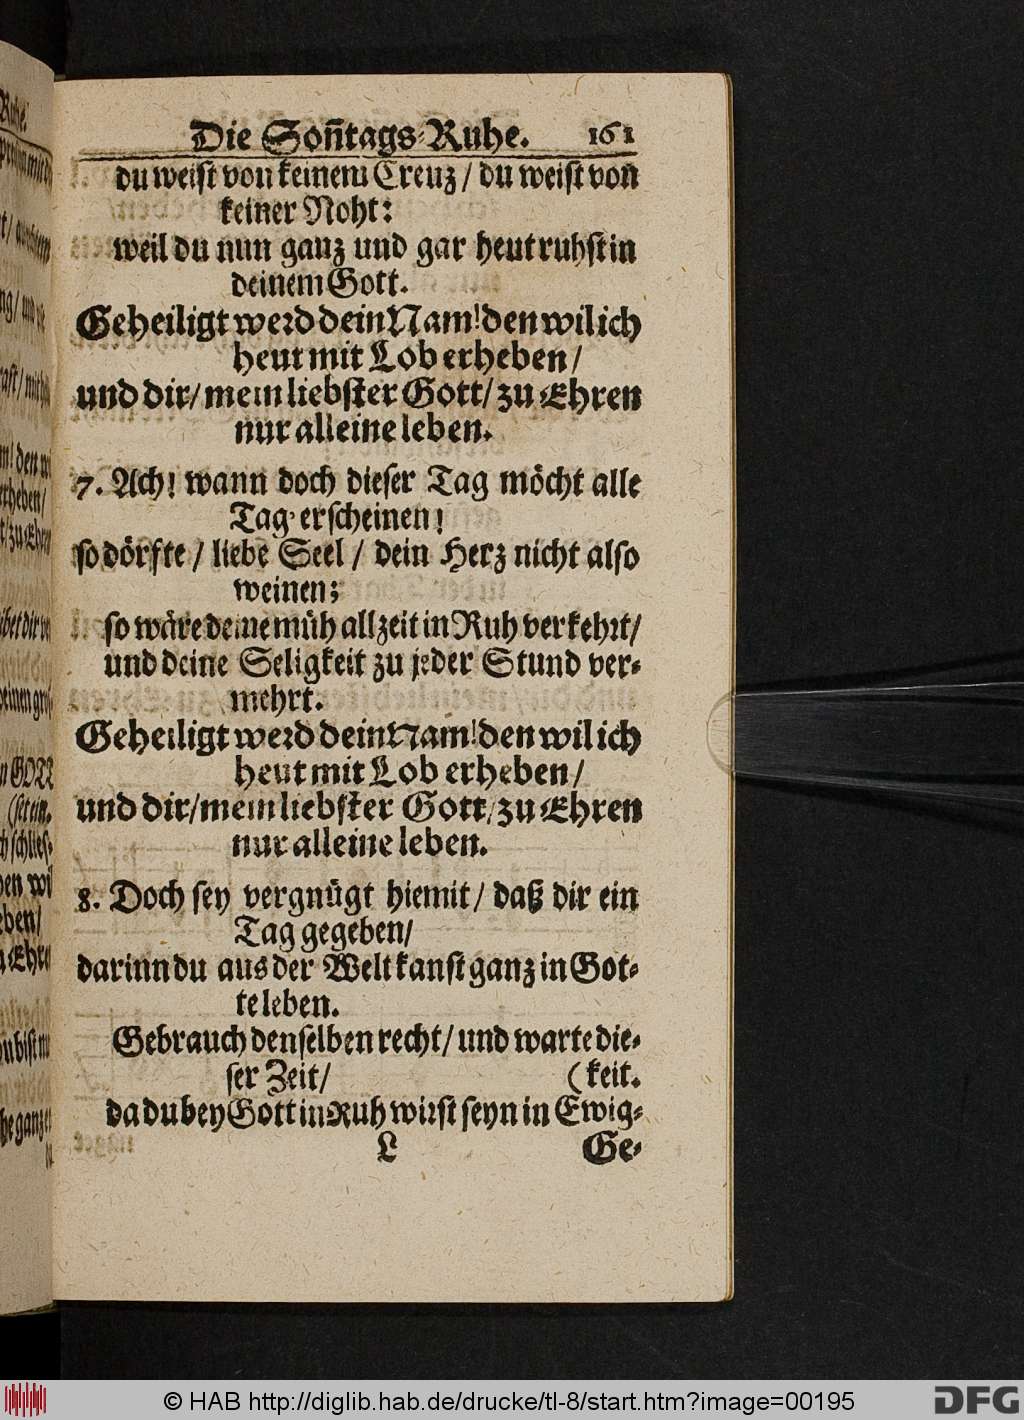 Die Soñtags-Ruhe. 161
du weist von keinem Creuz / du weist von̄
keiner Noht:
weil du nun ganz und gar heut ruhst in
deinem Gott.
Geheiligt werd dein Nam! den wil ich
heut mit Lob erheben /
und dir / mein liebster Gott / zu Ehren
nur alleine leben.
7. Ach! wann doch dieser Tag möcht alle
Tag erscheinen!
so dörfte / liebe Seel / dein Herz nicht also
weinen;
so wäre deine müh allzeit in Ruh verkehrt /
und deine Seligkeit zu jeder Stund ver-
mehrt.
Geheiligt werd dein Nam! den wil ich
heut mit Lob erheben /
und dir / mein liebster Gott / zu Ehren
nur alleine leben.
8. Doch sey vergnügt hiemit / daß dir ein
Tag gegeben /
darinn du aus der Welt kanst ganz in Got-
te leben.
Gebrauch denselben recht / und warte die-
ser Zeit / (keit.
da du bey Gott in Ruh wirst seyn in Ewig-
L Ge-
© HAB http://diglib.hab.de/drucke/tl-8/start.htm?image=00195
DFG